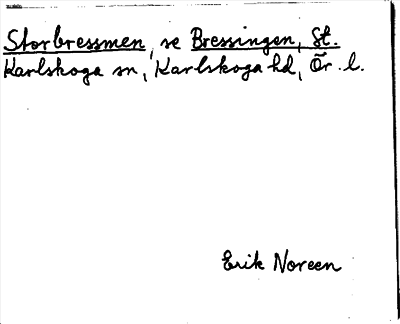 Storbressmen, se Bressingen, St.
Karlskoga sn, Karlskoga hd, Ör. l.
Erik Noreen